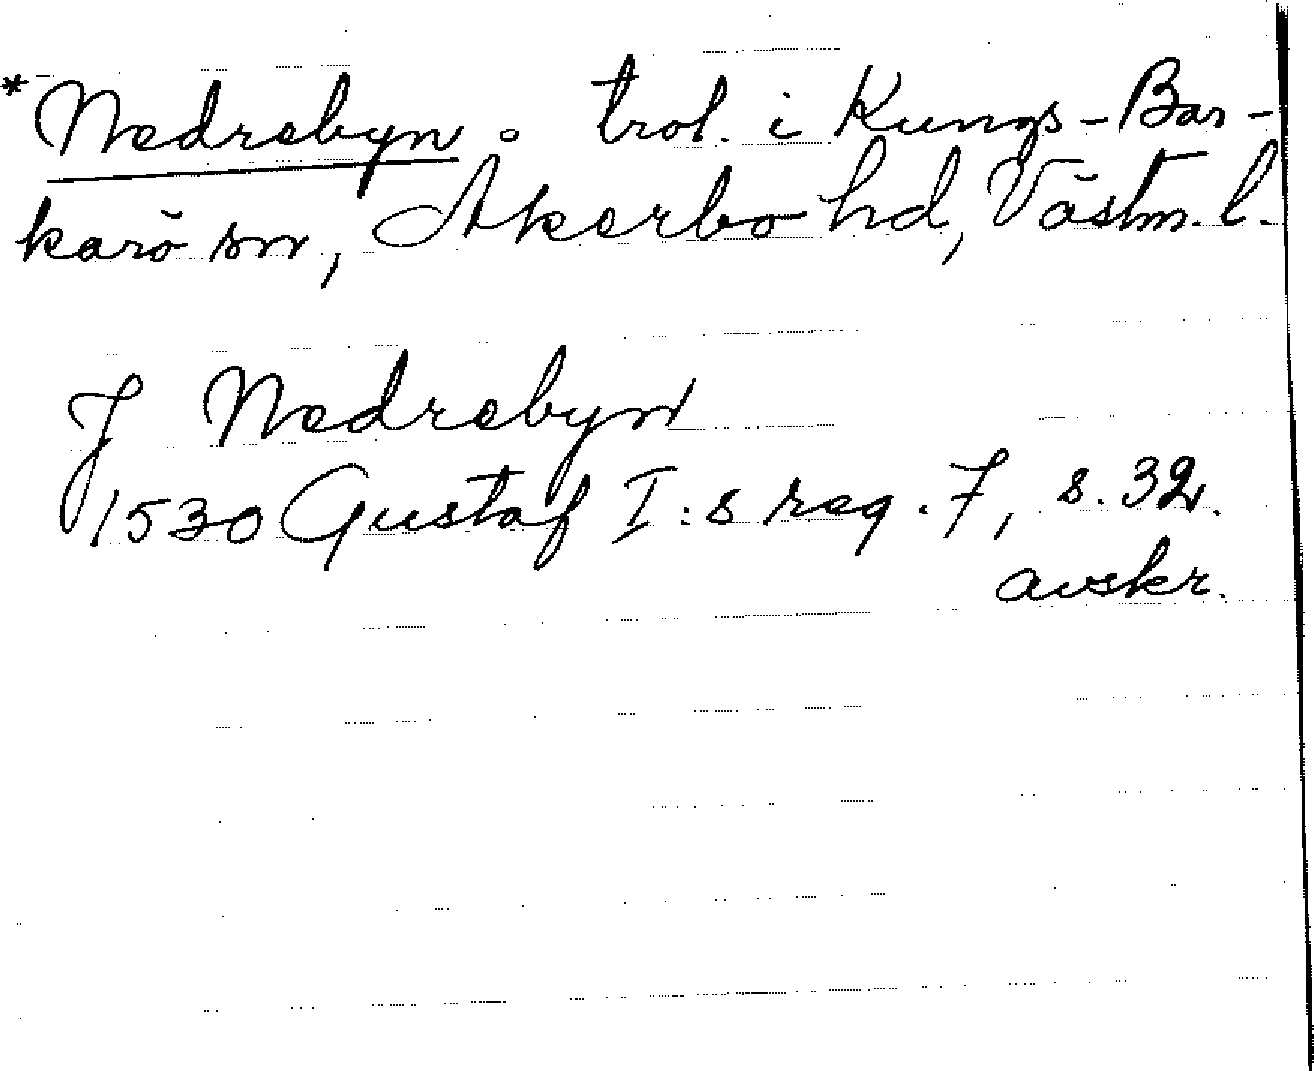 *Nedrebyn o trol. i Kungs-Bar-
karö sn, Åkerbo hd, Västm. l.
J Nedrebyn
1530 Gustaf I:s reg. 7, s. 32.
avskr.